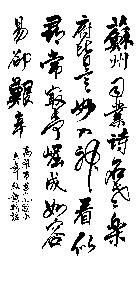 蘇州司業詩名老樂
府皆言妙入神看似
尋常最奇崛成如容
易卻艱辛